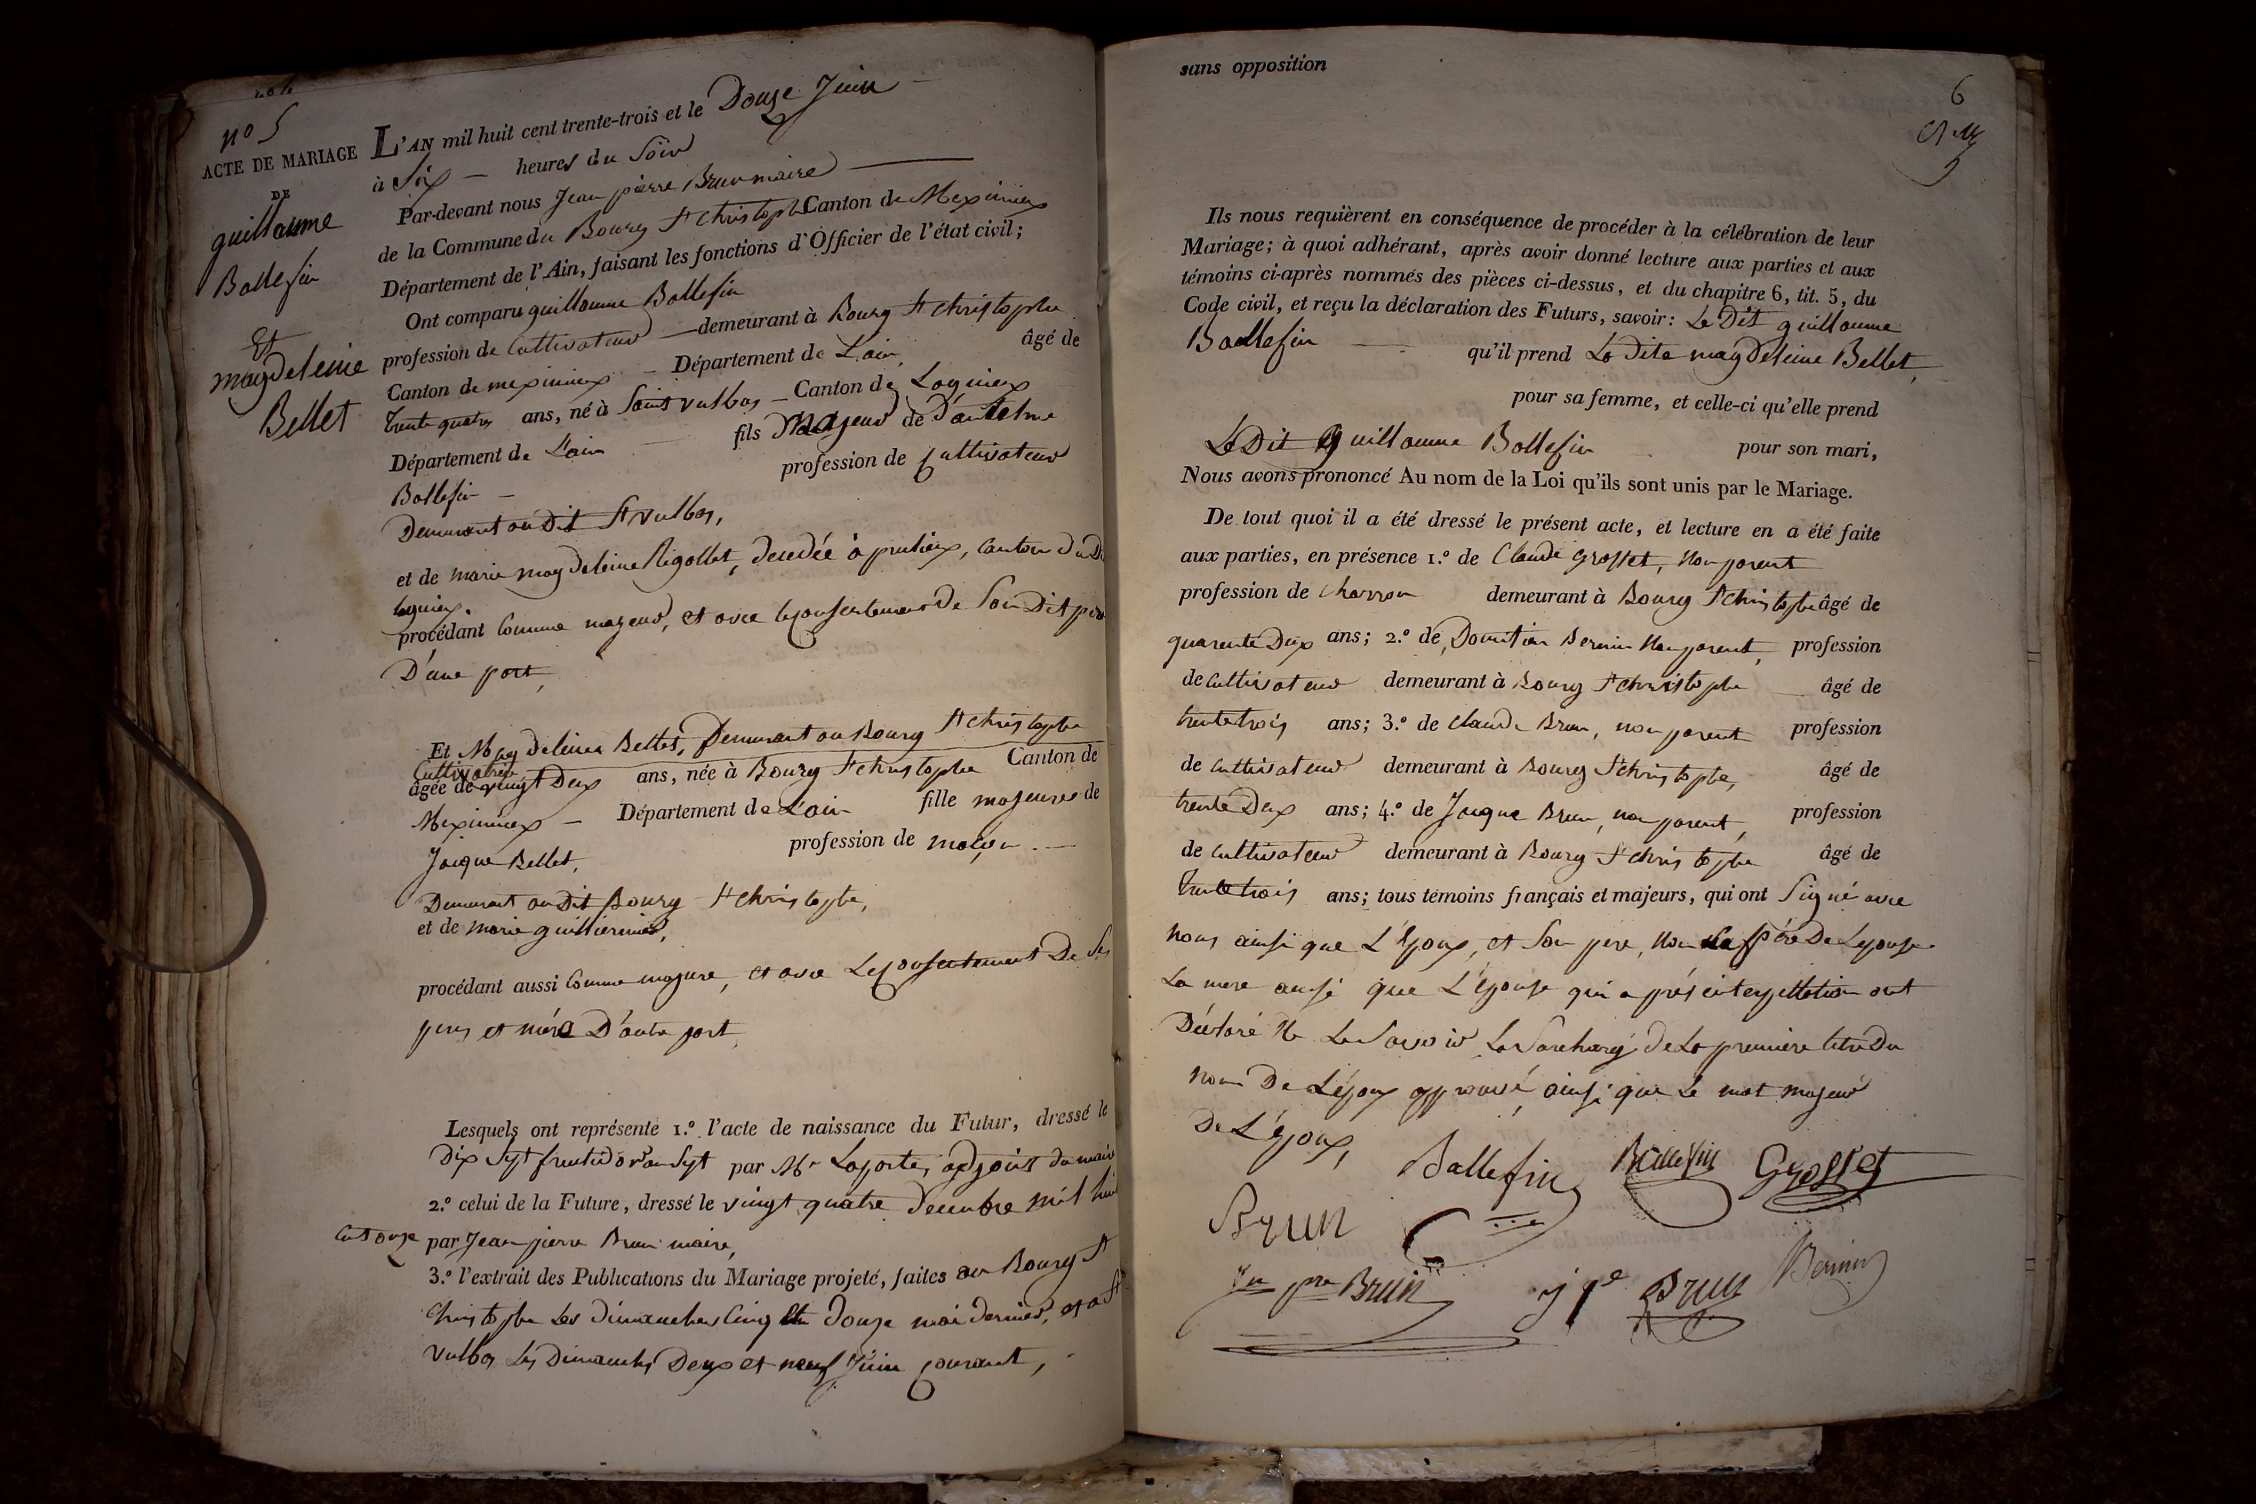 n° 5
ACTE DE MARIAGE
DE
guillaume
Ballefin
Et
magdeleine
Bellet
L'AN mil huit cent trente-trois et le Douze Juin
à Six heures du Soir
Par-devant nous Jean pierre Brun maire
de la Commune du Bourg St christophe Canton de Meximieux
Département de l'Ain, faisant les fonctions d'Officier de l'état civil;
Ont comparu guillaume Ballefin
profession de Cultivateur demeurant à Bourg St christophe
Canton de meximieux Département de L'ain âgé de
trente quatre ans, né à Saint vulbas Canton de Lagnieux
Département de L'ain fils Majeur de D'antelme
Ballefin profession de Cultivateur
Demeurant au Dit St vulbas,
et de marie magdeleine Rigollet, decedée à prulieux, Canton du Dit
lagnieux.
procédant Comme majeur, et avec le Consentement de Son Dit père
D'une part,
Et Magdeleine Bellet, Demeurant au Bourg St christophe
Cultivatrice
âgée de vingt Deux ans, née à Bourg St christophe Canton de
Meximieux Département de L'ain fille majeure de
Jacque Bellet, profession de maçon
Demeurant au Dit Bourg St christophe,
et de marie guillermin,
procédant aussi Comme majeure, et avec Le Consentement De Ses
peres et mére D'autre part,
Lesquels ont représenté 1.° l'acte de naissance du Futur, dressé le
Dix Sept fructidor an Sept par Mr Laporte, adjoint du maire
2.° celui de la Future, dressé le vingt quatre decembre mil huit
Cent onze par Jean pierre Brun maire,
3.° l'extrait des Publications du Mariage projeté, faites au Bourg St
christophe Les dimanches Cinq et Douze mai dernier, et a St
vulbas Les Dimanches Deux et neuf Juin Courant,
sans opposition
6
Ils nous requièrent en conséquence de procéder à la célébration de leur
Mariage; à quoi adhérant, après avoir donné lecture aux parties et aux
témoins ci-après nommés des pièces ci-dessus, et du chapitre 6, tit. 5, du
Code civil, et reçu la déclaration des Futurs, savoir: Le Dit guillaume
Ballefin qu'il prend La Dite magdeleine Bellet,
pour sa femme, et celle-ci qu'elle prend
Le Dit guillaume Ballefin pour son mari,
Nous avons prononcé Au nom de la Loi qu'ils sont unis par le Mariage.
De tout quoi il a été dressé le présent acte, et lecture en a été faite
aux parties, en présence 1.° de Claude Grosset, Non parent
profession de Charron demeurant à Bourg St christophe âgé de
quarente Deux ans; 2.° de Domitien Bernin Non parent, profession
de Cultivateur demeurant à Bourg St christophe âgé de
trente trois ans; 3.° de claude Brun, non parent profession
de Cultivateur demeurant à Bourg St christophe, âgé de
trente Deux ans; 4.° de Jacque Brun, non parent, profession
de Cultivateur demeurant à Bourg St christophe âgé de
trente trois ans; tous témoins français et majeurs, qui ont Signé avec
nous ainsi que L'Epoux, et Son pere, Non Le père De Lepouse
La mere ausi que L'épouse qui après interpellation ont
Déclaré Ne Le Savoir La Surcharge de La première letre Du
nom De L'époux approuvé, ainsi que Le mot majeur
De L'époux,
Ballefin Ballefin Grosset
Brun
Jn pre Brun jqe Brun Bernin